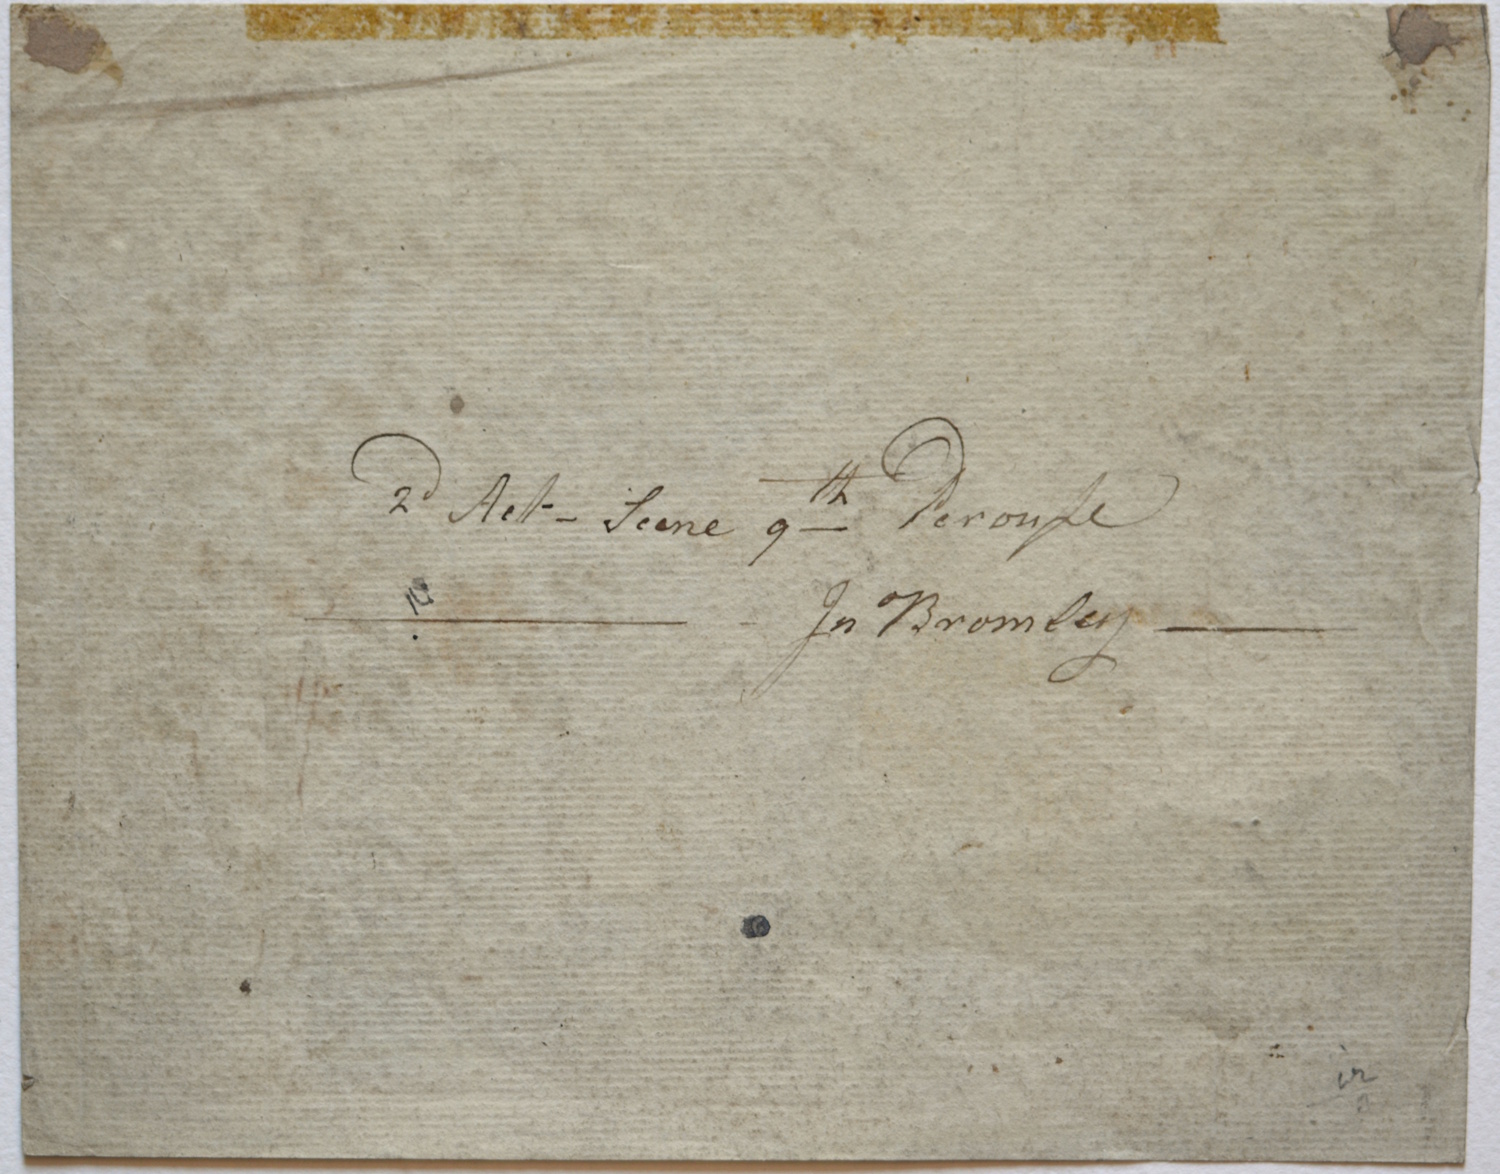 2d Act - Scene 9th Perouſe
Jn Bromley